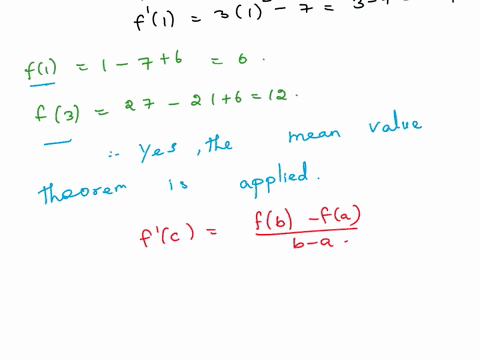 f'(1) = 3(1) - 7 = 3-7 =
f(1) = 1 - 7 + 6 = 6.
f(3) = 27 - 21 + 6 = 12.
∴ Yes, the mean value
theorem is applied.
f'(c) = f(b) - f(a)
b-a.